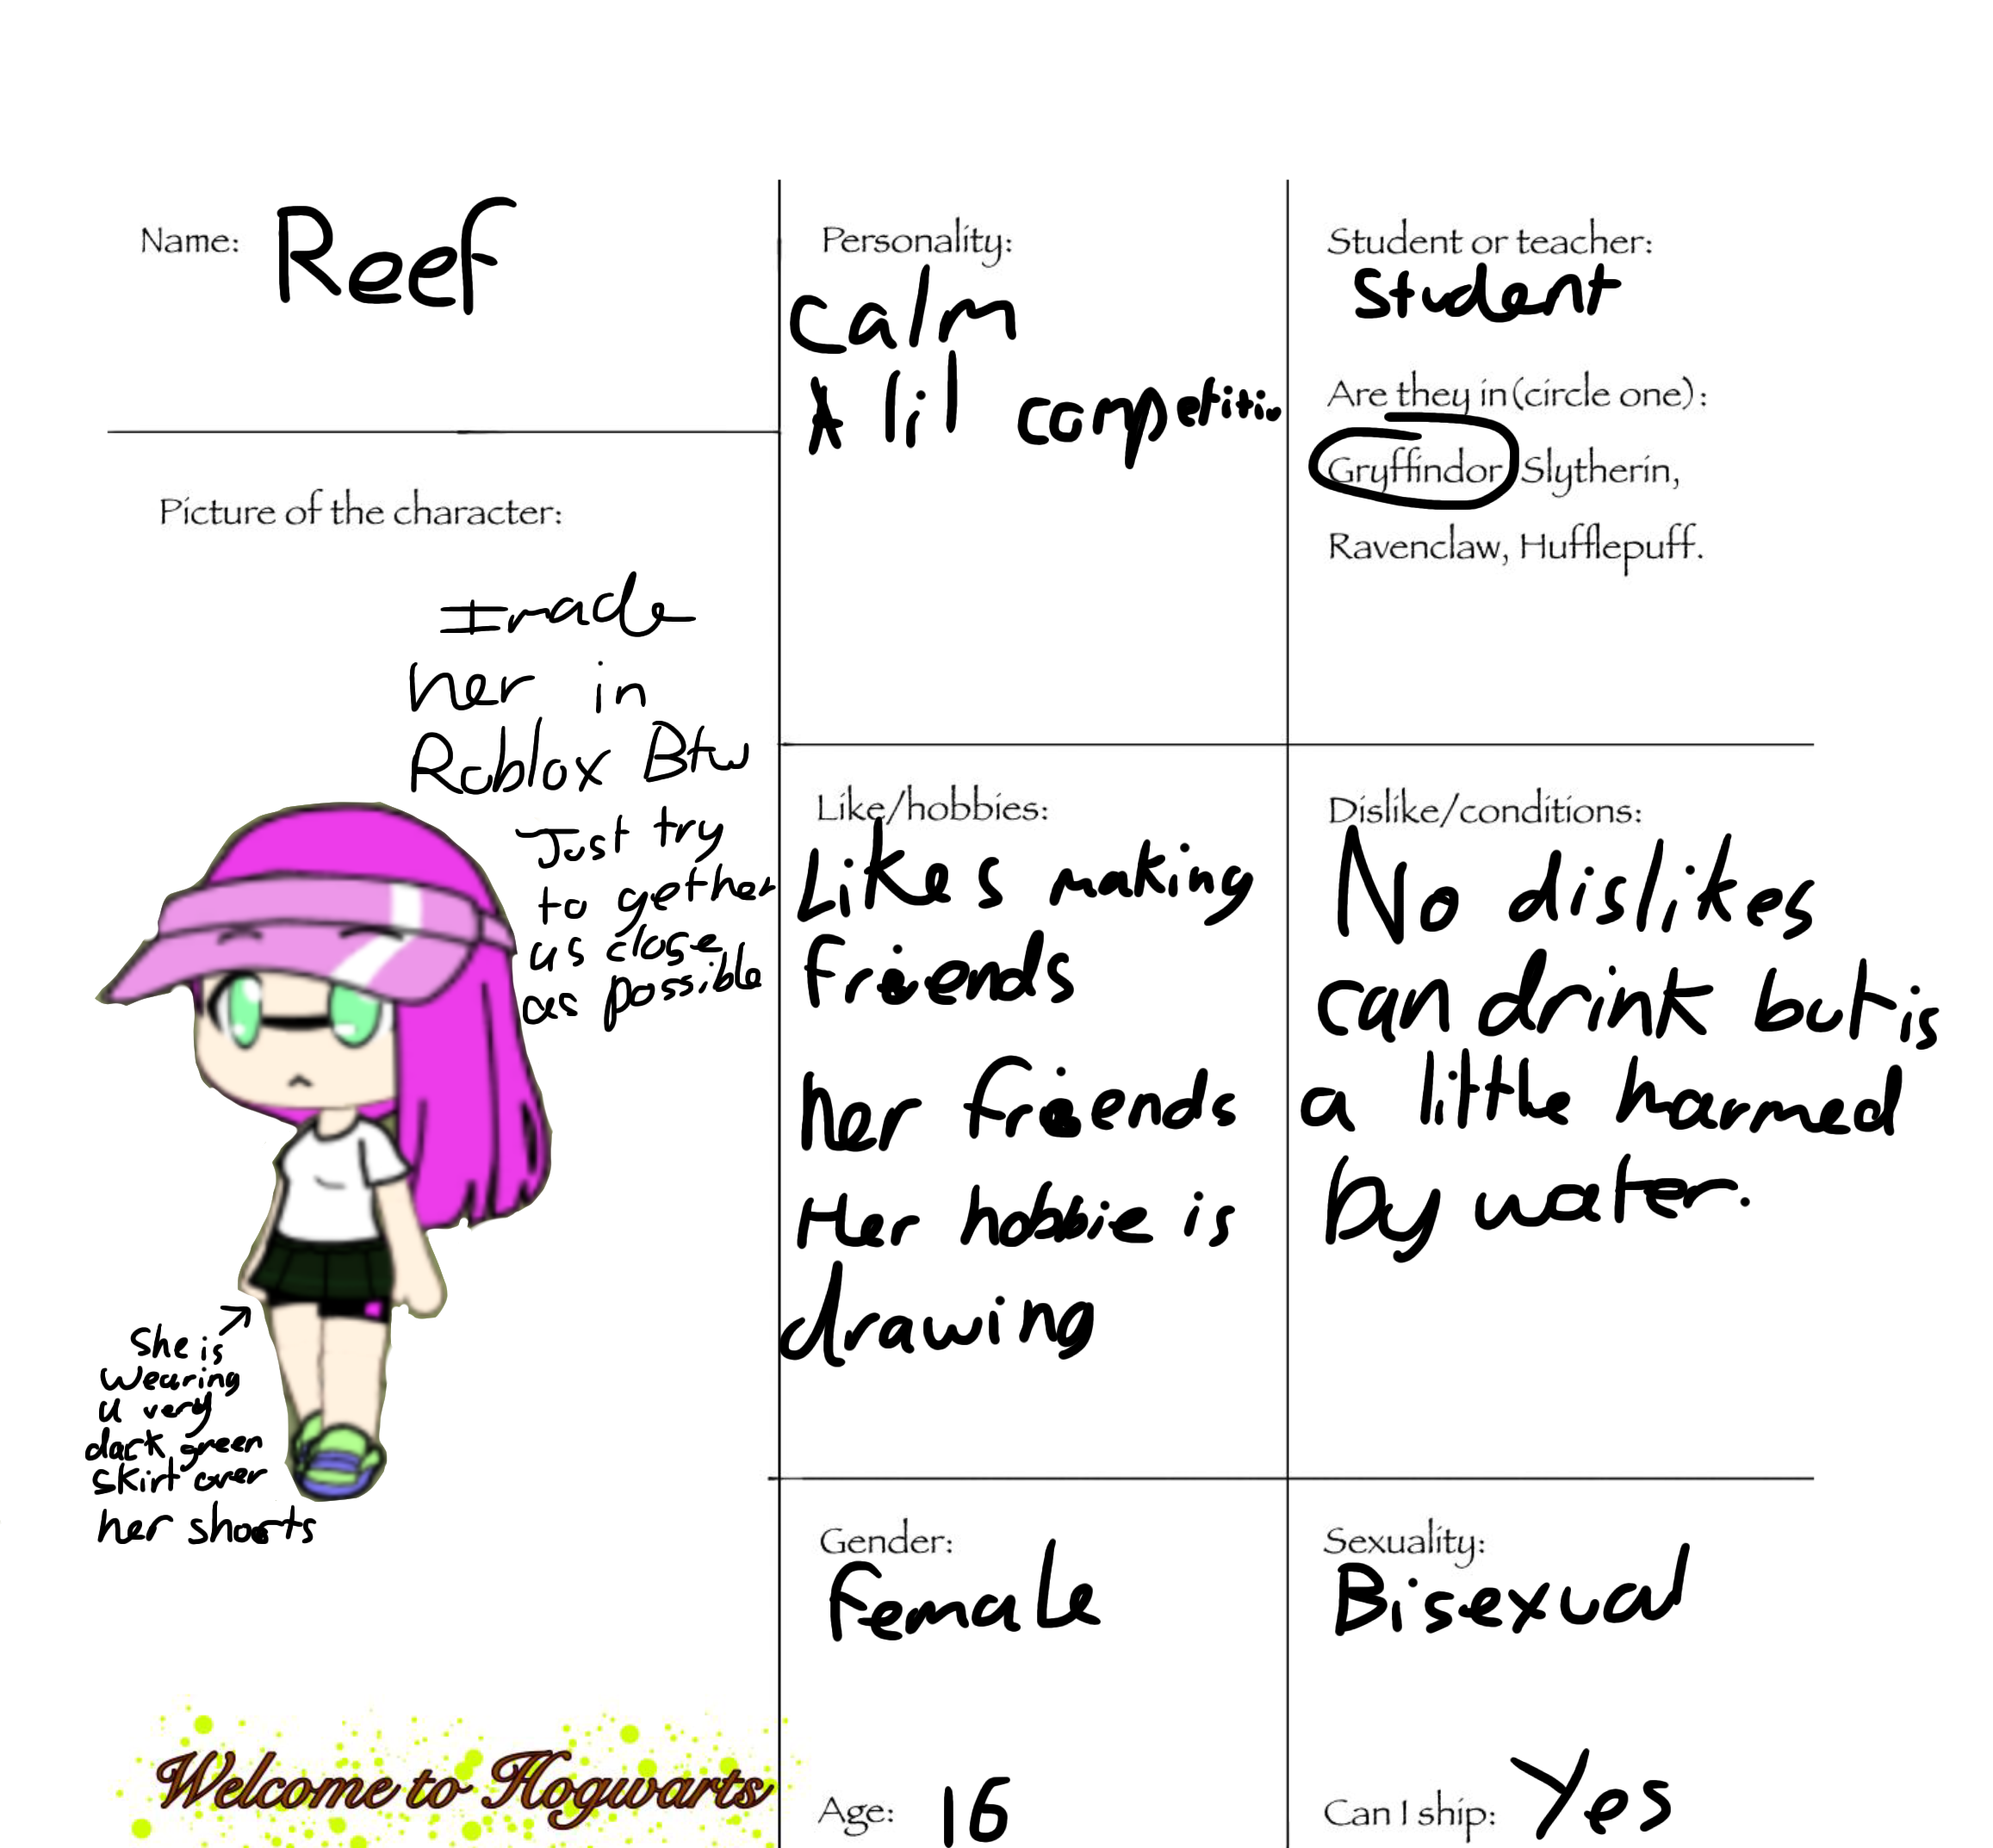 Name: Reef
Picture of the character:
I made
her in
Roblox Btw
Just try
to gether
as close
as possible
She is
wearing
a very
dark green
skirt over
her shorts
Welcome to Hogwarts
Personality:
Calm
A lil competitiv
Student or teacher:
Student
Are they in (circle one):
Gryffindor, Slytherin,
Ravenclaw, Hufflepuff.
Like/hobbies:
Likes making
friends
her friends
Her hobbie is
drawing
Dislike/conditions:
No dislikes
can drink but is
a little harmed
by water.
Gender:
Female
Sexuality:
Bisexual
Age: 16
Can I ship: Yes